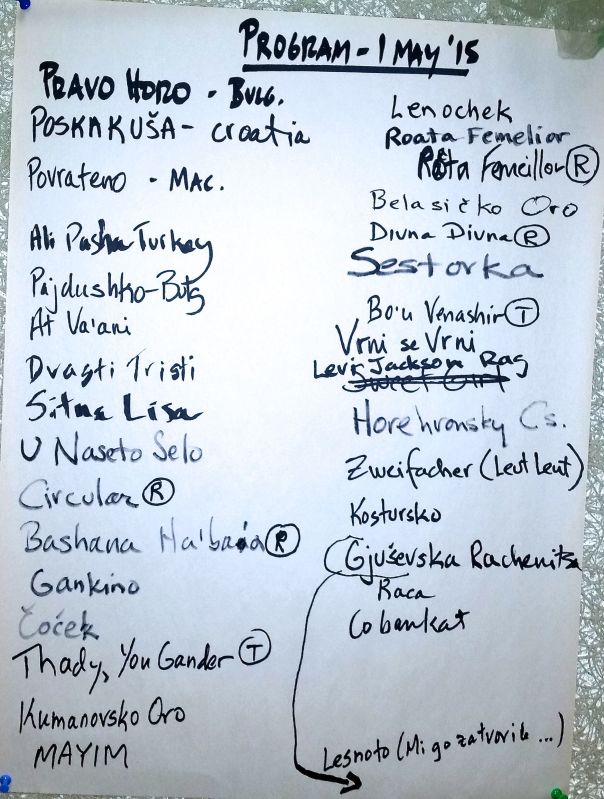 PROGRAM - 1 MAY '15
PRAVO HORO - BULG.
POSKAKUŠA - Croatia
Povrateno - MAC.
Ali Pasha Turkey
Pajdushko-Bulg
At Va'ani
Dvasti Tristi
Sitna Lisa
U Naseto Selo
Circular Ⓡ
Bashana Ha'baa Ⓡ
Gankino
Čoček
Thady, You Gander Ⓣ
Kumanovsko Oro
MAYIM
Lenochek
Roata Femeilor
Roata Femeillor Ⓡ
Belasičko Oro
Divna Divna Ⓡ
Sestorka
Bo'u Venashir Ⓣ
Vrni se Vrni
Levi Jackson Rag
Horehronsky Cs.
Zweifacher (Leut Leut)
Kostursko
Gjuševska Rachenitsa
Raca
Cobankat
Lesnoto (Mi go zatvorile ...)